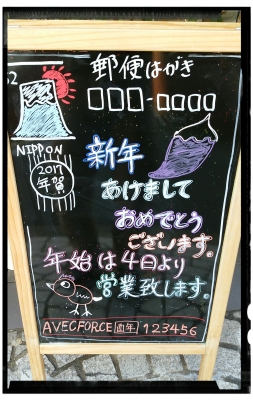 52
郵便はがき
□□□-□□□□
NIPPON
2017
年賀
新年
あけまして
おめでとう
ございます。
年始は4日より
営業致します。
AVECFORCE 酉年 123456